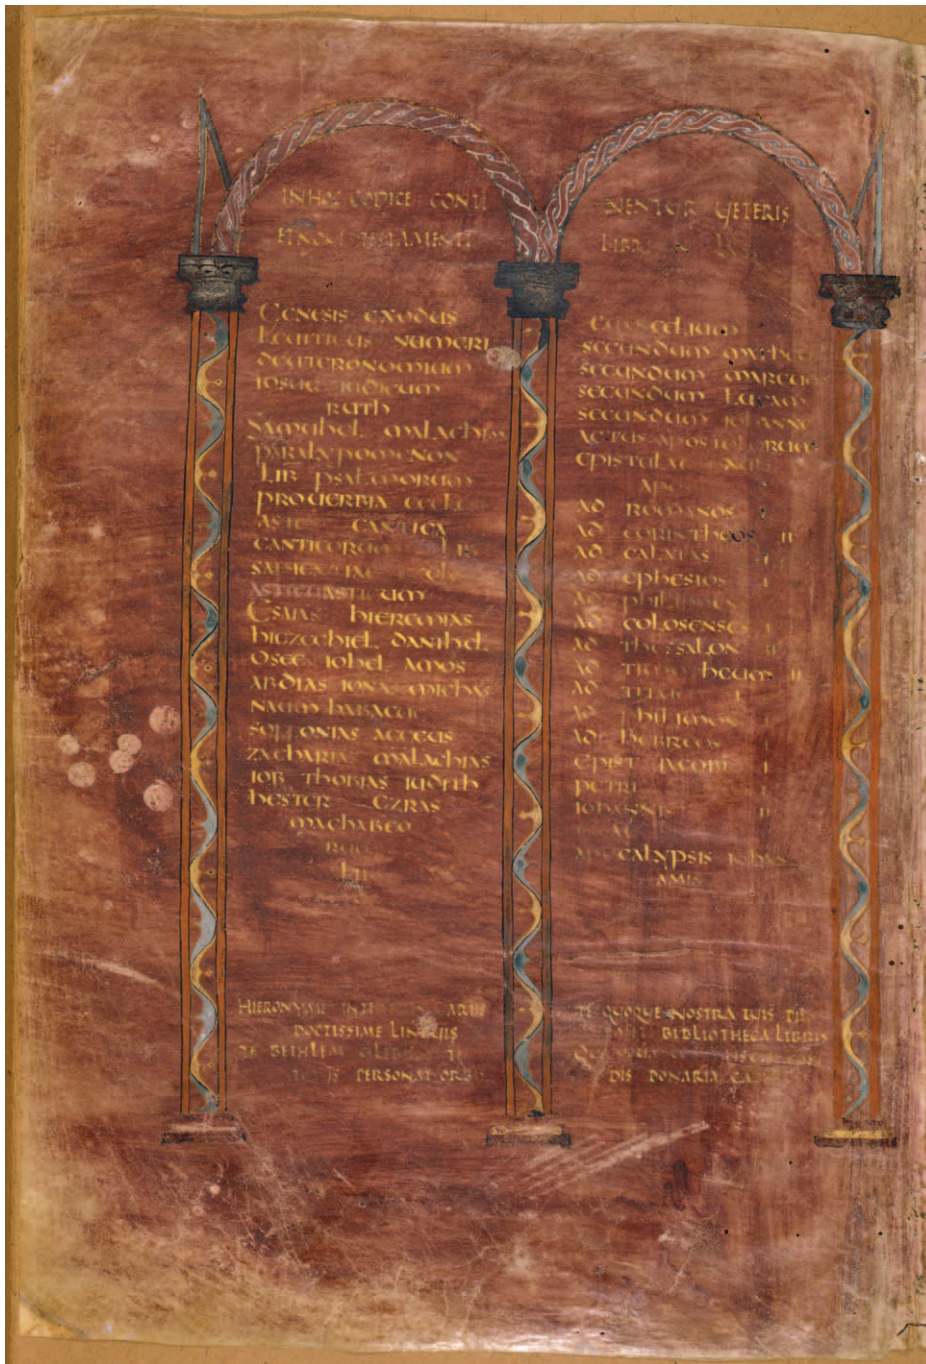 IN HOC CODICE CONTI
ET NOVI TESTAMENTI
GENESIS EXODUS
LEUITICUS NUMERI
DEUTERONOMIUM
IOSUE IUDICUM
RUTH
SAMUHEL MALACHIM
PARALYPOMENON
LIB PSALMORUM
PROUERBIA ECCLE
CANTICA
CANTICORUM LIB
SAPIENTIAE
ASTICUM
ESAIAS HIEREMIAS
HIEZECHIEL DANIHEL
OSEE IOHEL AMOS
ABDIAS IONAS MICHAS
NAUM HABACUC
SOFFONIAS AGGEUS
ZACHARIAS MALACHIAS
IOB THOBIAS IUDITH
HESTER EZRAS
MACHABEO
RUM
LII
HIERONYME INTE ARIIS
DOCTISSIME LINGUIS
TE BETHLEM CELEB
PERSONAT ORBIS
NENTUR UETERIS
LIBRI
EUANGELIUM
SECUNDUM MATHEU
SECUNDUM MARCUM
SECUNDUM LUCAM
SECUNDUM IOHANNE
ACTUS APOSTOLORUM
EPISTULAE
AD ROMANOS I
AD CORINTHEOS II
AD GALATAS I
AD EPHESIOS I
AD PHILIPPENS
AD COLOSENSES I
AD THESSALON II
AD TIMOTHEUM II
AD TITUM I
AD PHILIMON I
AD HEBREOS I
EPIST IACOBI I
PETRI
IOHANNIS
APOCALYPSIS IOHAN
TE QUOQUE NOSTRA TUIS
BIBLIOTHECA LIBRIS
DIS DONARIA GAZIS